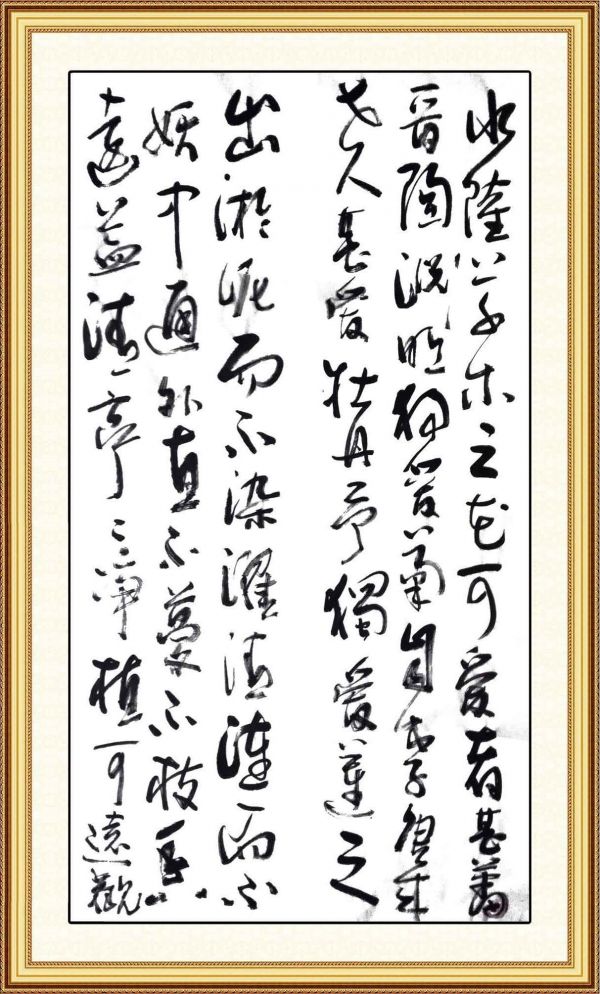 水陸草木之花可愛者甚蕃
晉陶淵明獨愛菊自李唐來
世人甚愛牡丹予獨愛蓮之
出淤泥而不染濯清漣而不
妖中通外直不蔓不枝香
遠益清亭亭淨植可遠觀